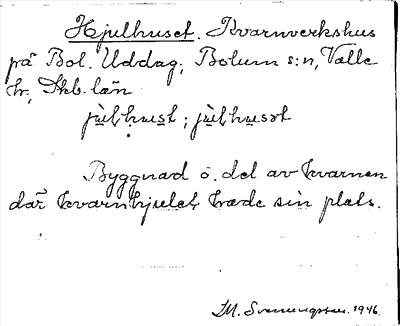 Hjulhuset. Kvarnverkshus
på Bol. Uddag, Bolum s:n, Valle
hr, Skb. län
jùl̥hu̲s̲t ; jùl̥hu̲sət
Byggnad o. del av kvarnen
där kvarnhjulet hade sin plats.
M. Svenungsson. 1946.